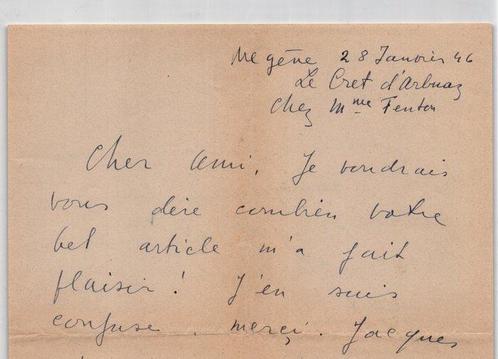 Megène 28 Janvier 46
Le Cret d'Arbuaz
Chez Mme Fenton
Cher ami, Je voudrais
vous dire combien votre
bel article m'a fait
plaisir ! J'en suis
confuse. merci. Jacques